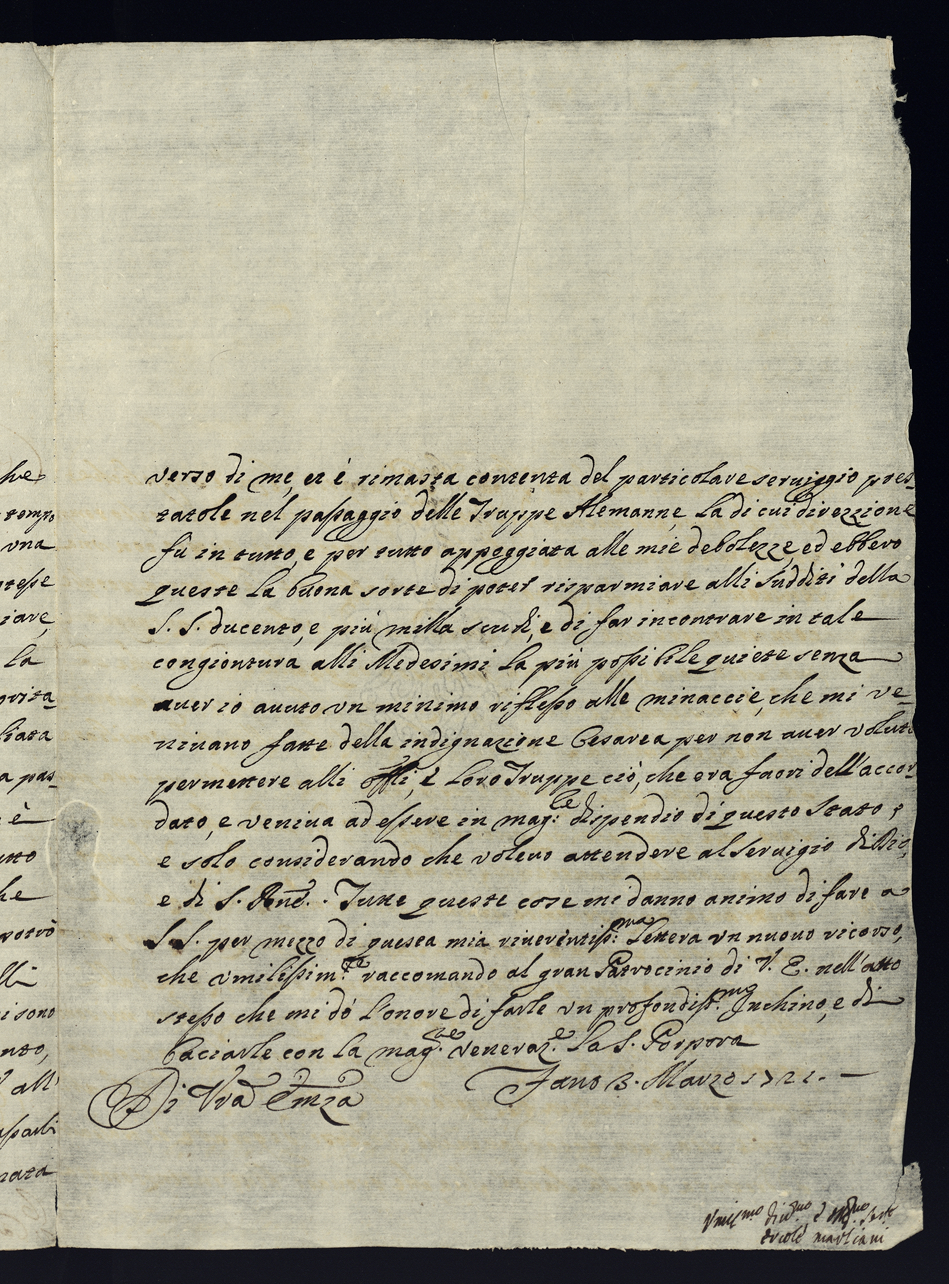 he
tempo
vna
stesse
iare,
la
orita
liata
a pas-
è
utto
he
potrò
lli
i sono
nto,
all'
sparsi
nata
verso di me, et è rimasta contenta del particolare seruiggio pres-
tatole nel passaggio delle Truppe Alemanne, la di cui direzzione
fù in tutto, e per tutto appoggiata alle mie debolezze, ed ebbero
queste la buona sorte di poter risparmiare alli sudditi della
S. S. ducento, e più milla scudi, e di far incontrare in tale
congiontura alli Medesimi la più possibile quiete senza
auer io auuto vn minimo riflesso alle minaccie, che mi ve-
niuano fatte della indignazione Cesarea per non auer voluto
permettere alli Offli, è loro Truppe ciò, che era fuori dell'accor-
dato, e veniua ad essere in mag:re dispendio di questo Stato;
e solo considerando che voleuo attendere al seruigio di Dio,
e di S. Bne. . Tutte queste cose mi danno animo di fare a
S. S. per mezzo di questa mia riuerentiss:ma Lettera vn nuovo ricorso,
che vmilissim:te raccomando al gran Patrocinio di V. E. nell'atto
stesso che mi dò l'onore di farle vn profondiss:mo Inchino, e di
baciarle con la mag:re veneraz:e la S. Porpora
Di Vra Emza Fano 3. Marzo 1721. —
Vmilmo diumo e obmo Serre
Ercole marliani